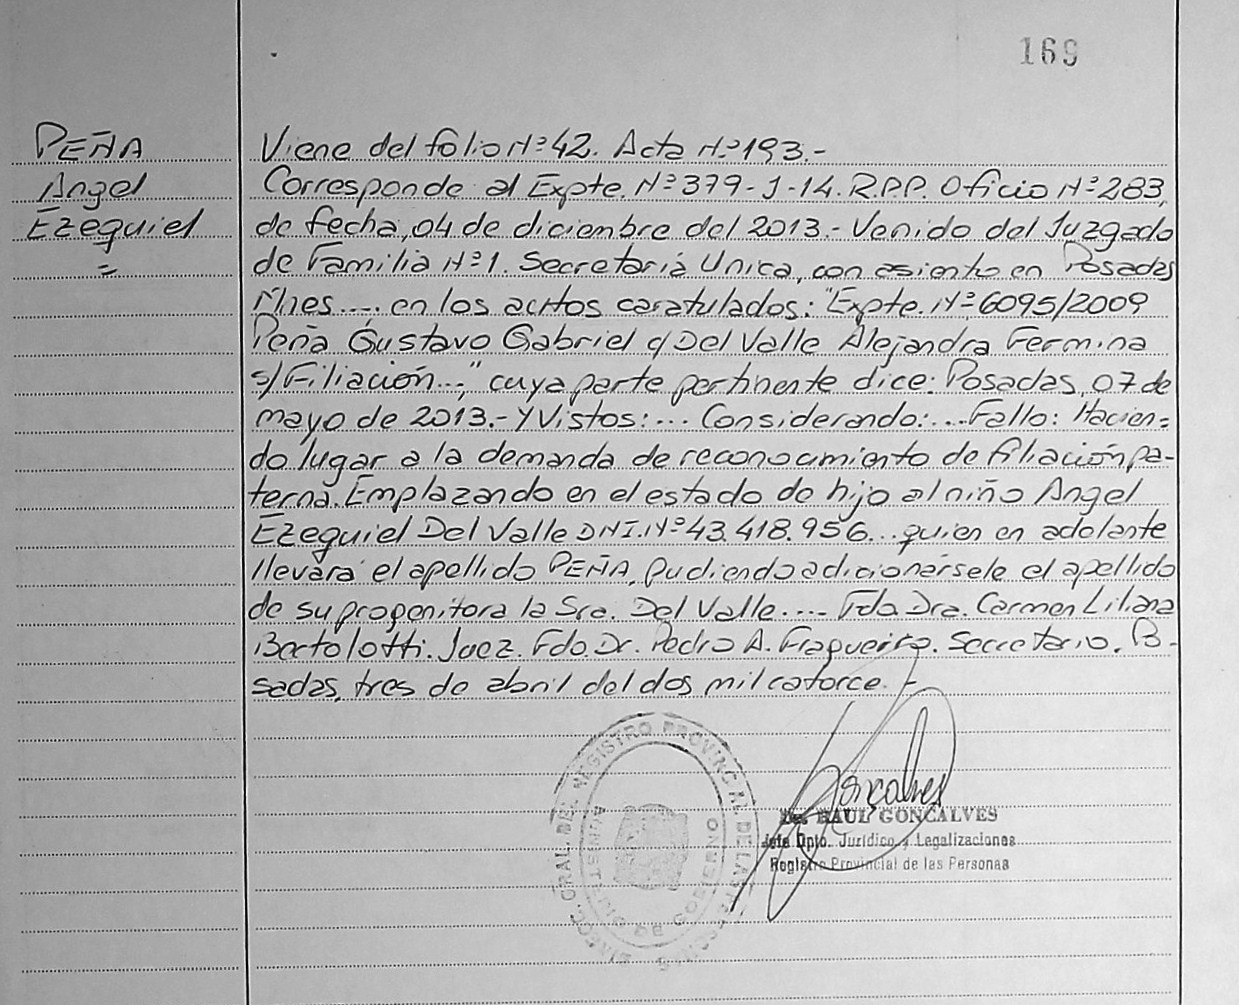 169
PEÑA
Angel
Ezequiel
=
Viene del folio Nº 42. Acta Nº 193.-
Corresponde al Expte. Nº 379-J-14. R.P.P. Oficio Nº 283,
de fecha, 04 de diciembre del 2013.- Venido del Juzgado
de Familia Nº 1. Secretaría Unica, con asiento en Posadas
Mnes.... en los autos caratulados: "Expte. Nº 6095/2009
Peña Gustavo Gabriel c/ Del Valle Alejandra Fermina
s/Filiación...," cuya parte pertinente dice: Posadas, 07 de
mayo de 2013.- Y Vistos:... Considerando:... Fallo: Hacien=
do lugar a la demanda de reconocimiento de filiación pa-
terna. Emplazando en el estado de hijo al niño Angel
Ezequiel Del Valle DNI. Nº 43.418.956... quien en adelante
llevará el apellido PEÑA, pudiendo adicionársele el apellido
de su progenitora la Sra. Del Valle.... Fdo Dra. Carmen Liliana
Bertolotti. Juez. Fdo. Dr. Pedro A. Fragueiro. Secretario. Po-
sadas, tres de abril del dos mil catorce.-
DIRECC. GRAL. DEL REGISTRO PROVINCIAL DE LAS PERSONAS
MINISTERIO DE GOBIERNO
Gonçalves
Dr. RAUL GONCALVES
Jefe Dpto. Jurídico y Legalizaciones
Registro Provincial de las Personas